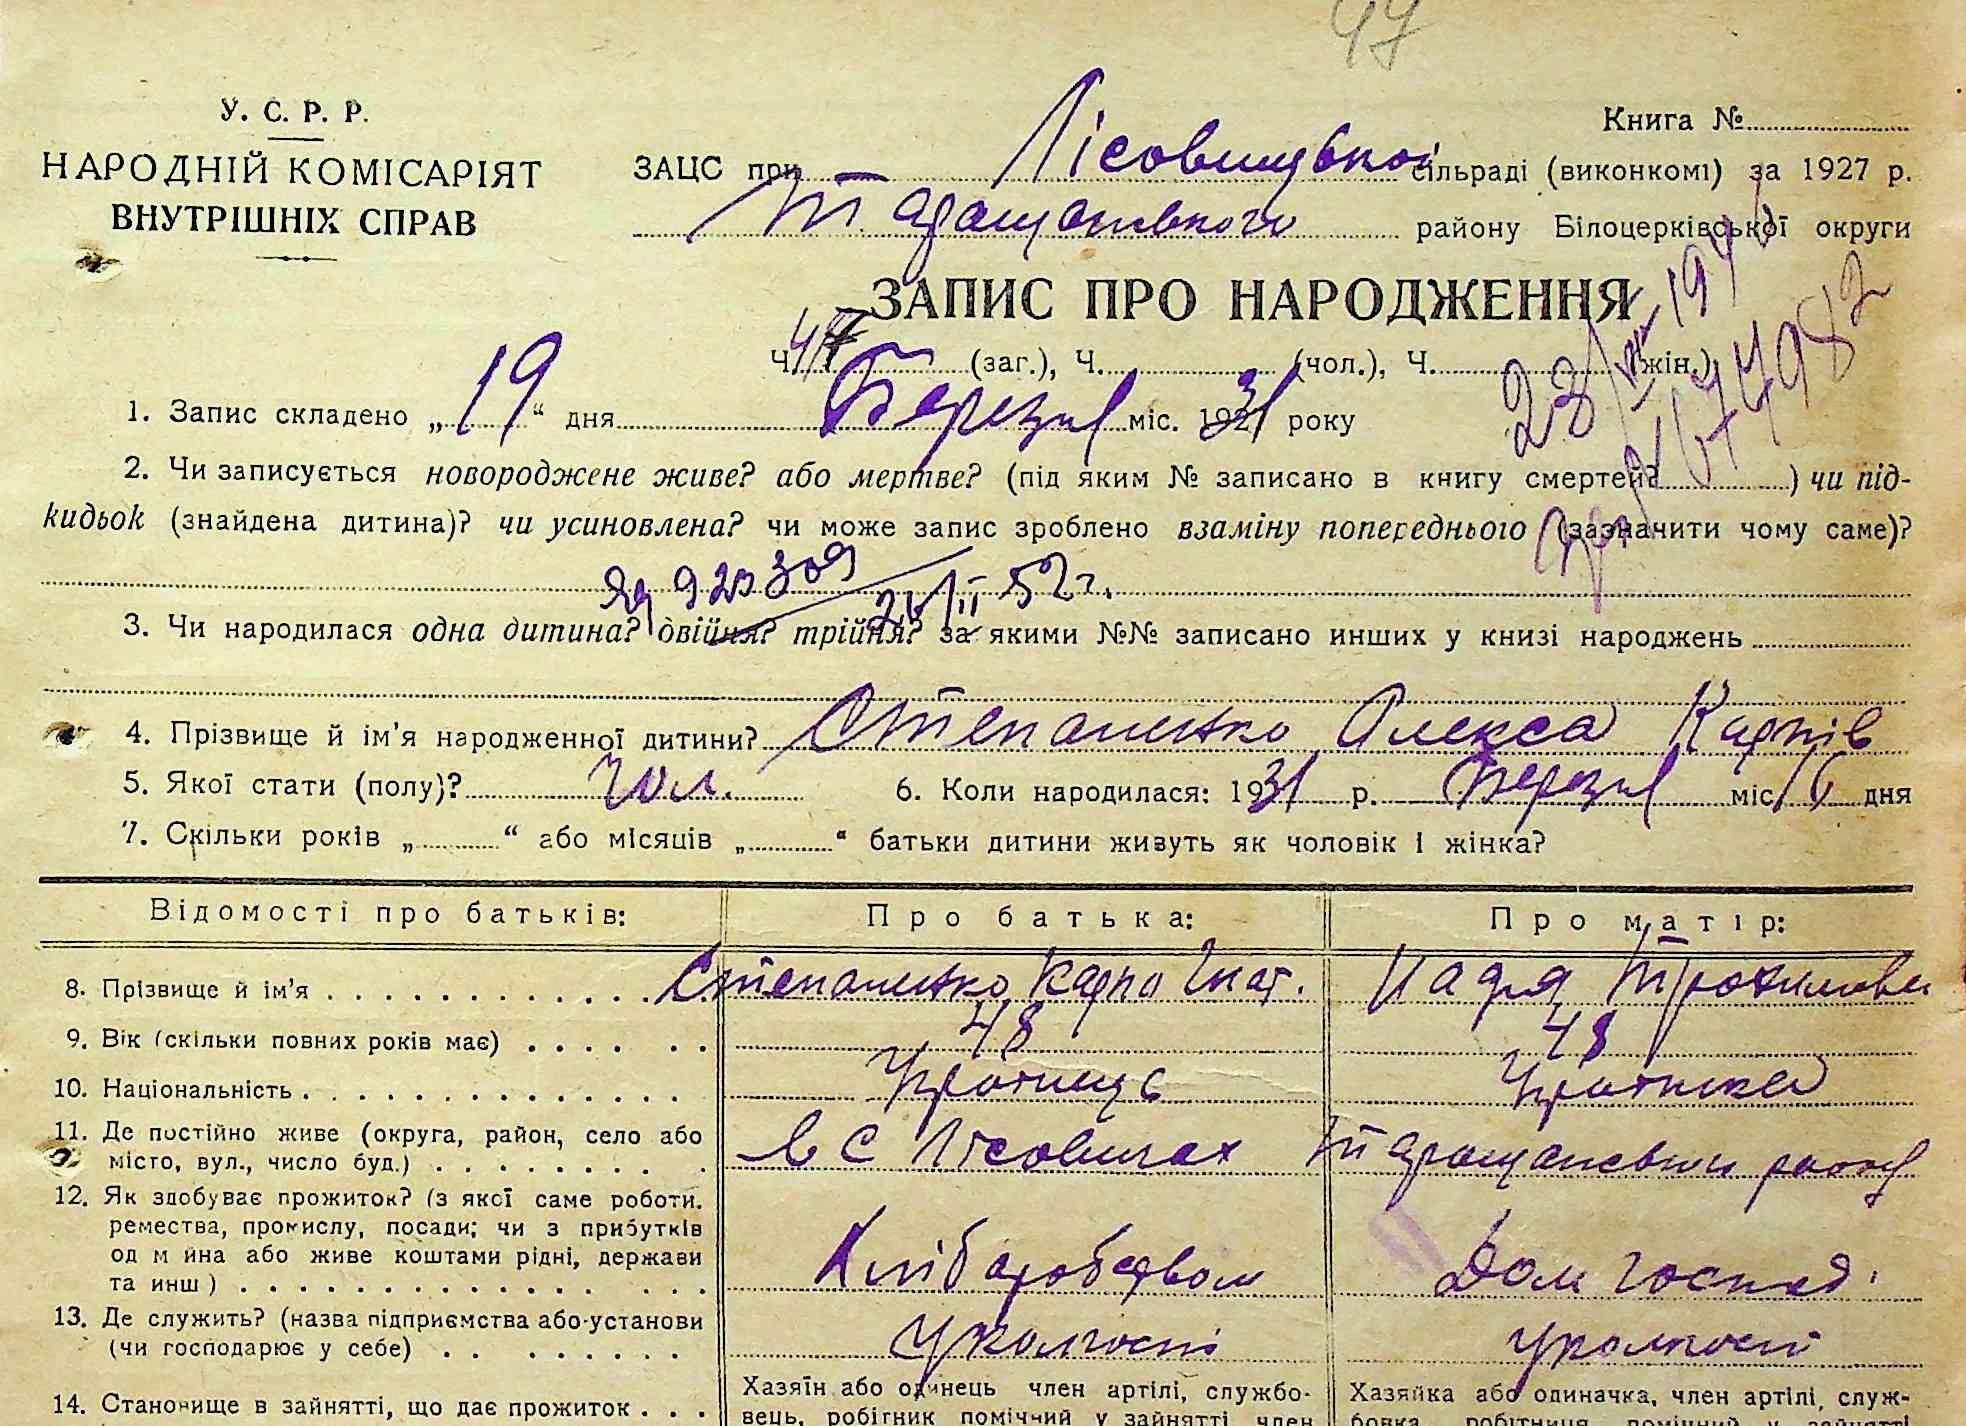 47
У. С. Р. Р.
НАРОДНІЙ КОМІСАРІЯТ
ВНУТРІШНІХ СПРАВ
Книга №
ЗАЦС при Лісовицькой сільраді (виконкомі) за 1927 р.
Таращанського району Білоцерківської округи
ЗАПИС ПРО НАРОДЖЕННЯ
Ч. 47 (заг.), Ч. (чол.), Ч. (жін.)
1. Запис складено „19“ дня Березня міс. 1931 року
2. Чи записується новороджене живе? або мертве? (під яким № записано в книгу смертей? ) чи під-
кидьок (знайдена дитина)? чи усиновлена? чи може запис зроблено взаміну попереднього (зазначити чому саме)?
3. Чи народилася одна дитина? двійня? трійня? за якими №№ записано инших у книзі народжень
4. Прізвище й ім'я народженної дитини? Степаненко Олекса Карпів
5. Якої стати (полу)? Чол. 6. Коли народилася: 1931 р. Березня міс. 16 дня
7. Скільки років „ “ або місяців „ “ батьки дитини живуть як чоловік і жінка?
Відомості про батьків: Про батька: Про матір:
8. Прізвище й ім'я Степаненко Карпо Гнат. Надя Трохимовна
9. Вік (скільки повних років має) 48 48
10. Національність
11. Де постійно живе (округа, район, село або
місто, вул., число буд.) в с Лісовичах Таращанським району
12. Як здобуває прожиток? (з якої саме роботи,
ремества, промислу, посади; чи з прибутків
од м йна або живе коштами рідні, держави
та инш) Хліборобством Дом господ.
13. Де служить? (назва підприємства або установи
(чи господарює у себе) У колгоспі У колгоспі
14. Становище в зайнятті, що дає прожиток
Хазяїн або одинець член артілі, службо-
вець, робітник помічний у зайнятті член
Хазяйка або одиначка, член артілі, служ-
бовка, робітниця помічний у зайнятті